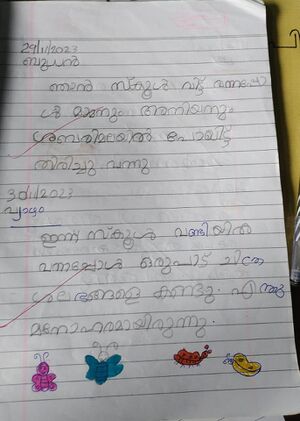 29/11/2023
ബുധൻ
ഞാൻ സ്കൂൾ വിട്ട് വന്നപ്പോ
ൾ മാമനും അനിയനും
ശബരിമലയിൽ പോയിട്ട്
തിരിച്ചു വന്നു
30/11/2023
വ്യാഴം
ഇന്ന് സ്കൂൾ വണ്ടിയിൽ
വന്നപ്പോൾ ഒരുപാട് ചിത്ര
ശലഭങ്ങളെ കണ്ടു. എന്തു
മനോഹരമായിരുന്നു.